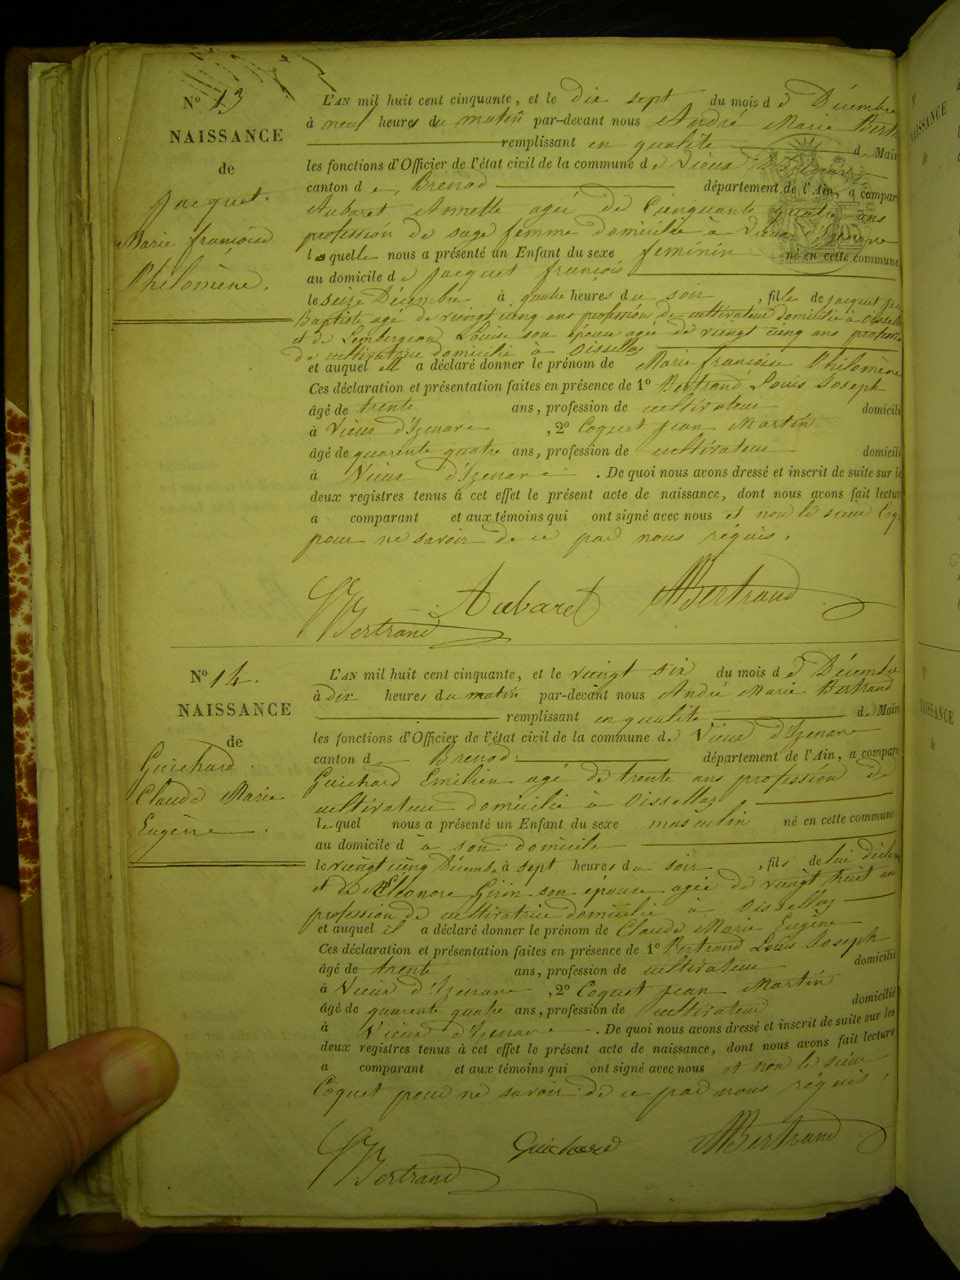 N° 13
NAISSANCE
de
Jacquet
Marie françoise
Philomène.
L'AN mil huit cent cinquante, et le dix sept du mois d e Décembre
à neuf heures du matin par-devant nous André Marie Bertr
remplissant en qualité de Mair
les fonctions d'Officier de l'état civil de la commune de Vieux d'Izenave
canton de Brenod département de l'Ain, a compar
Aubaret Annette agée de Cinquante quatre ans
profession de sage femme domiciliée à Vieux d'Izenave
laquelle nous a présenté un Enfant du sexe féminin né en cette commune
au domicile de jacquet françois
le seize Décembre à quatre heures du soir, fille de jacquet
Baptiste agé de veingt cinq ans profession de cultivateur domicilié à Oissellas
et de Louise son épouse agée de veingt cinq ans profession
de cultivatrice domicilié à Oissellas
et auquel ell a déclaré donner le prénom de Marie françoise Philomène
Ces déclaration et présentation faites en présence de 1° Bertrand Louis Joseph
âgé de trente ans, profession de cultivateur domicili
à Vieux d'Izenave, 2° Coquet jean Martin
âgé de quarente quatre ans, profession de cultivateur domicili
à Vieux d'Izenave. De quoi nous avons dressé et inscrit de suite sur le
deux registres tenus à cet effet le présent acte de naissance, dont nous avons fait lectur
a comparant et aux témoins qui ont signé avec nous et non le sieur Coq
pour ne savoir de ce par nous réquis.
Bertrand Aubaret Bertrand
N° 14.
NAISSANCE
de
Guichard
Claude Marie
Eugène.
L'AN mil huit cent cinquante, et le veingt six du mois d e Décembre
à dix heures du matin par-devant nous André Marie Bertrand
remplissant en qualité de Mair
les fonctions d'Officier de l'état civil de la commune de Vieux d'Izenave
canton de Brenod département de l'Ain, a compar
Guichard Emilien agé de trente ans profession de
cultivateur domicilié à Oissellas
lequel nous a présenté un Enfant du sexe masculin né en cette commune
au domicile d a son domicile
le veingt cinq Décembre à sept heures du soir, fils de lui déclar
et de Eléonore Girin son épouse agée de veingt huit ans
profession de cultivatrice domicilié à Oissellas
et auquel il a déclaré donner le prénom de Claude Marie Eugène
Ces déclaration et présentation faites en présence de 1° Bertrand Louis Joseph
âgé de trente ans, profession de cultivateur domicilié
à Vieux d'Izenave, 2° Coquet jean Martin
âgé de quarente quatre ans, profession de cultivateur domicilié
à Vieux d'Izenave. De quoi nous avons dressé et inscrit de suite sur les
deux registres tenus à cet effet le présent acte de naissance, dont nous avons fait lecture
a comparant et aux témoins qui ont signé avec nous et non le sieur
Coquet pour ne savoir de ce par nous réquis.
Bertrand Guichard Bertrand